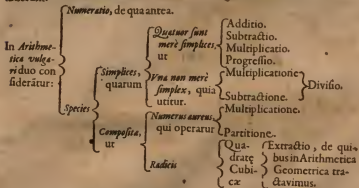 Numeratio, de qua antea.
In Arithme-
tica vulga-
ri duo con
siderātur:
Species
Simplices,
quarum
Quatuor sunt
merè simplices,
ut
Additio.
Subtractio.
Multiplicatio.
Progressio.
Vna non merè
simplex, quia
utitur.
Multiplicatione
Subtractione.
Divisio.
Compositæ,
ut
Numerus aureus,
qui operatur
Multiplicatione.
Partitione.
Radicis
Qua-
dratę
Cubi-
cæ
Extractio, de qui-
bus in Arithmetica
Geometrica tra-
ctavimus.